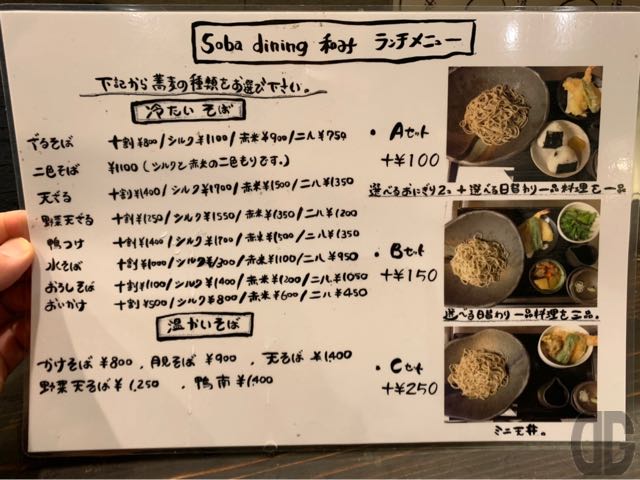 Soba dining 和み ランチメニュー
下記から蕎麦の種類をお選び下さい。
冷たいそば
ざるそば 十割¥800/シルク¥1100/赤米¥900/二八¥750
二色そば ¥1100(シルクと赤米の二色もりです。)
天ざる 十割¥1400/シルク¥1700/赤米¥1500/二八¥1350
野菜天ざる 十割¥1250/シルク¥1550/赤米¥1350/二八¥1200
鴨つけ 十割¥1400/シルク¥1700/赤米¥1500/二八¥1350
水そば 十割¥1000/シルク¥1300/赤米¥1100/二八¥950
おろしそば 十割¥1100/シルク¥1400/赤米¥1200/二八¥1050
おいかけ 十割¥500/シルク¥800/赤米¥600/二八¥450
温かいそば
かけそば ¥800、月見そば ¥900、天そば ¥1,400
野菜天そば¥1,250、鴨南¥1,400
・Aセット
+¥100
選べるおにぎり2コ+選べる日替わり一品料理を一品
・Bセット
+¥150
選べる日替わり一品料理を二品。
・Cセット
+¥250
ミニ天丼。
DG